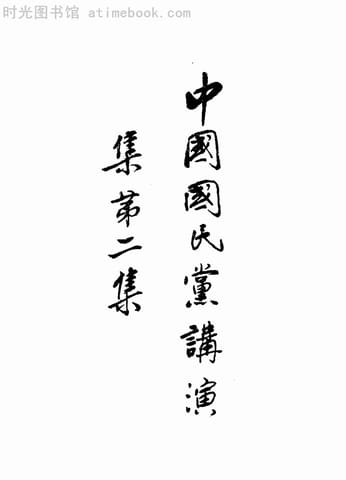 时光图书馆 atimebook.com
中國國民黨講演
集第二集